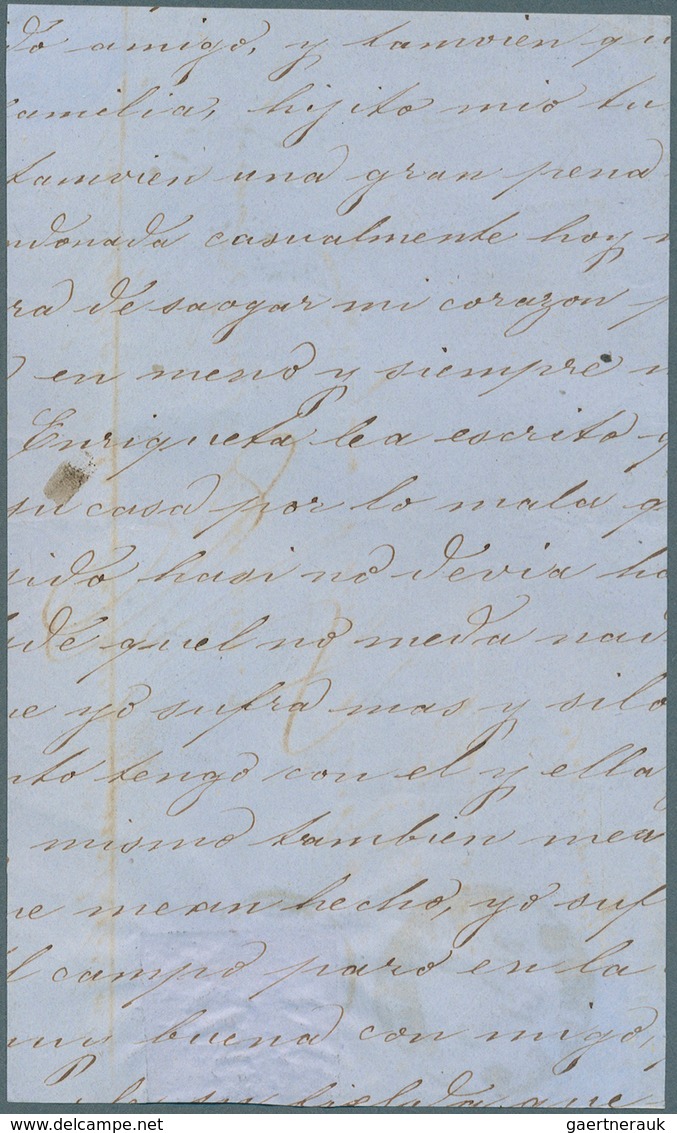 do amigo, y tamvien qu
familia, hijito mio tu
tamvien una gran pena
ndonada casualmente hoy
ra de saogar mi corazon p
en meno y siempre
Enriqueta lea escrito q
su casa por lo mala q
sido hasi no devia ha
ide quel no meda nad
ue yo sufra mas y silo
nto tengo con el y ella
mismo tambien mea
ue mean hecho, yo suf
l campo paro en la
muy buena con migo,
que
gaertnerauk